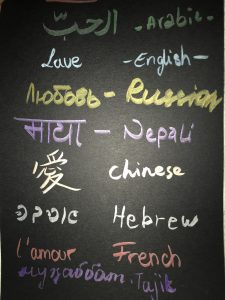 الحبّ - Arabic
Love - English -
Любовь - Russian
माया - Nepali
愛 chinese
Hebrew
l'amour French
муҳаббат. Tajik